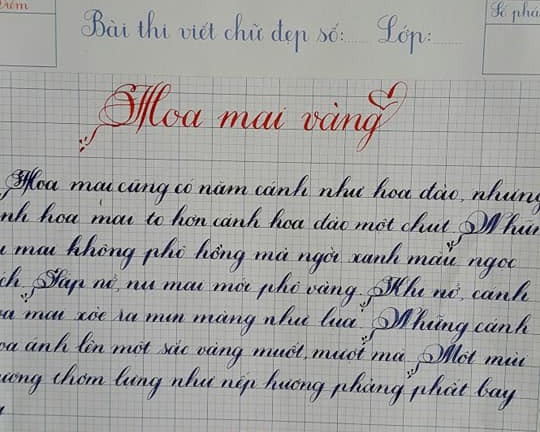 Điểm
Số phá
Bài thi viết chữ đẹp số:...... Lớp:......
Hoa mai vàng
Hoa mai cũng có năm cánh như hoa đào, nhưng
nh hoa mai to hơn cánh hoa đào một chút. Nhữn
ụ mai không phô hồng mà ngời xanh màu ngọc
ch. Sắp nở, nụ mai mới phô vàng. Khi nở, cánh
a mai xòe ra mịn màng như lụa. Những cánh
oa ánh lên một sắc vàng muốt, mượt mà. Một mùi
ương thơm lựng như nếp hương phảng phất bay